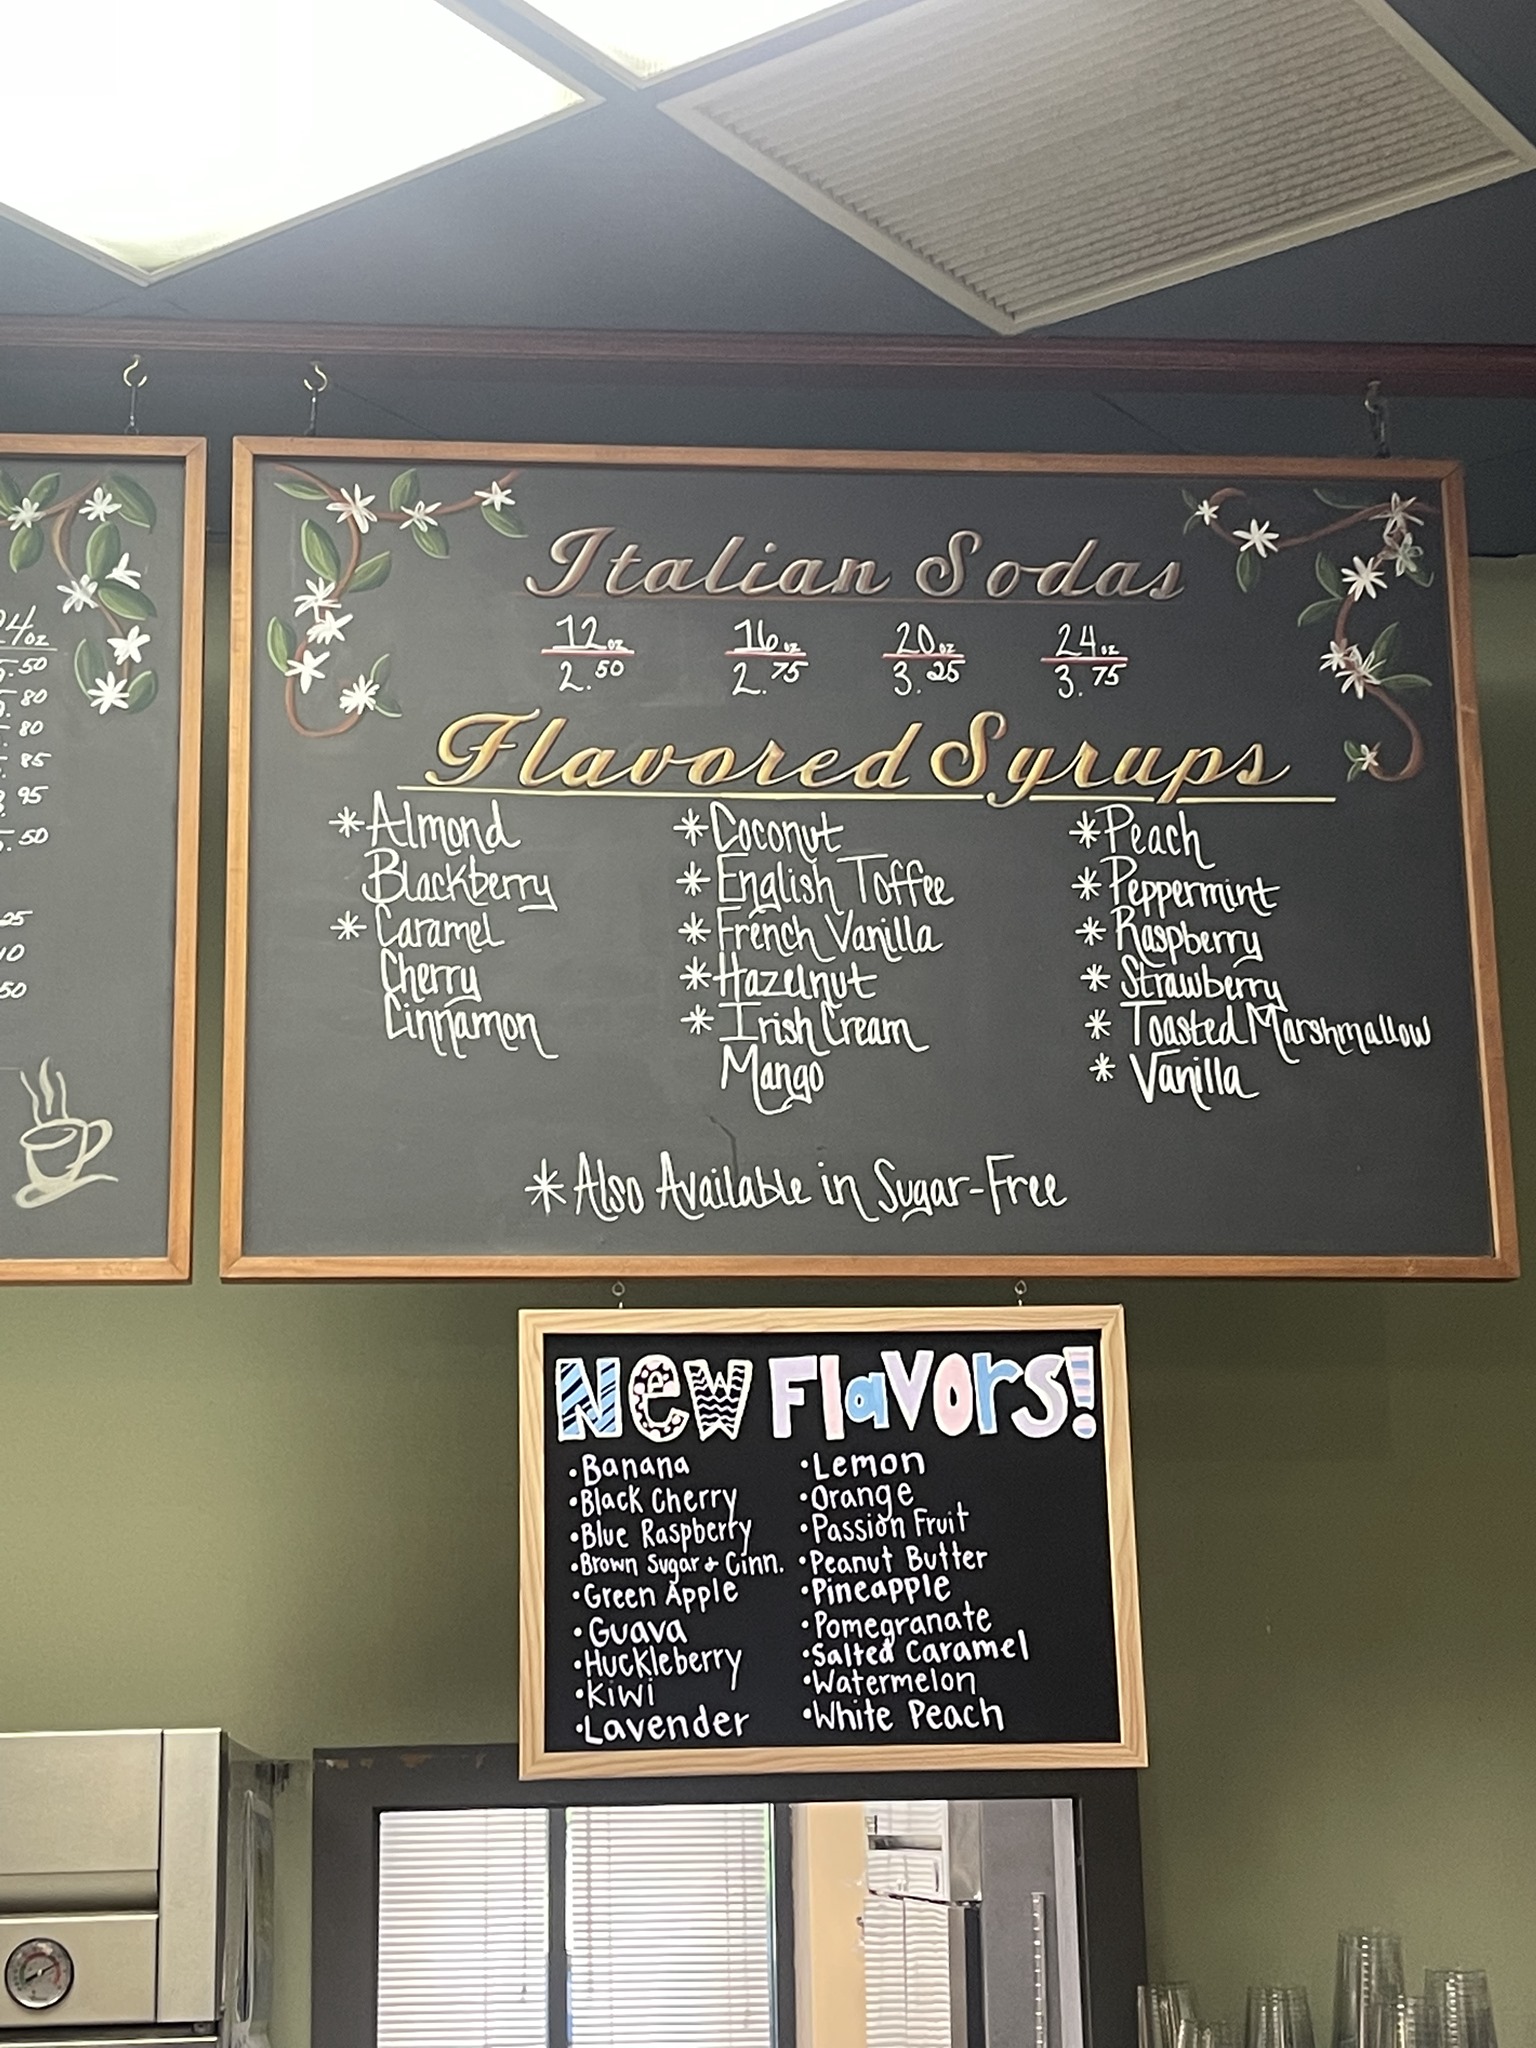 24oz
.50
.80
.80
.85
.95
.50
25
10
50
Italian Sodas
12oz 16oz 20oz 24oz
2.50 2.75 3.25 3.75
Flavored Syrups
*Almond
Blackberry
*Caramel
Cherry
Cinnamon
*Coconut
*English Toffee
*French Vanilla
*Hazelnut
*Irish Cream
Mango
*Peach
*Peppermint
*Raspberry
*Strawberry
*Toasted Marshmallow
*Vanilla
*Also Available in Sugar-Free
New Flavors!
•Banana
•Black Cherry
•Blue Raspberry
•Brown Sugar & Cinn.
•Green Apple
•Guava
•Huckleberry
•Kiwi
•Lavender
•Lemon
•Orange
•Passion Fruit
•Peanut Butter
•Pineapple
•Pomegranate
•Salted Caramel
•Watermelon
•White Peach